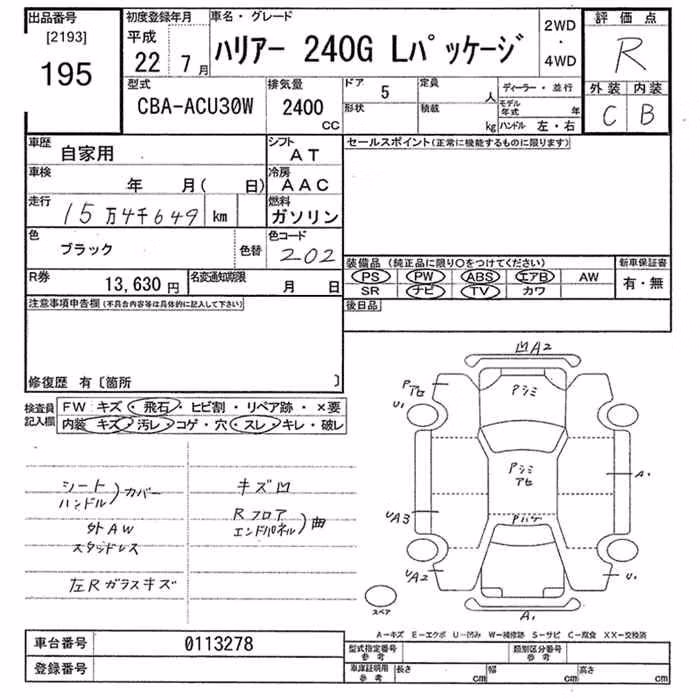 出品番号
[2193]
195
初度登録年月
平成
22 7月
車名・グレード
ハリアー 240G Lパッケージ
2WD
・
4WD
評価点
R
外装 内装
C B
型式
CBA-ACU30W
排気量
2400
CC
ドア 5
形状
定員 人
積載 kg
ディーラー・並行
モデル年式 年
ハンドル 左・右
車歴
自家用
シフト
AT
セールスポイント(正常に機能するものに限ります)
車検
年 月( 日)
冷房
AAC
走行
15万4千649 km
燃料
ガソリン
色
ブラック
色替
色コード
202
装備品(純正品に限り○をつけてください)
新車保証書
PS PW ABS エアB AW
有・無
SR ナビ TV カワ
R券
13,630円
名変通知期限
月 日
後日品
注意事項申告欄(不具合内容等は具体的に記入して下さい)
修復歴 有〔箇所 〕
検査員
記入欄
FW キズ・飛石・ヒビ割・リペア跡・×要
内装 キズ・汚レ・コゲ・穴・スレ・キレ・破レ
シート
ハンドル)カバー
外AW
スタッドレス
左Rガラスキズ
キズ凹
Rフロア
エンドパネル)曲
凹A2
Pアセ
Pシミ
U1
Pシミ
アセ
A1
UA3
Pハゲ
UA2
U1
スペア
A1
A-キズ E-エクボ U-凹み W-補修跡 S-サビ C-腐食 XX-交換済
車台番号
0113278
型式指定番号
参考
類別区分番号
参考
登録番号
車庫証明用
参考
長さ cm
幅 cm
高さ cm